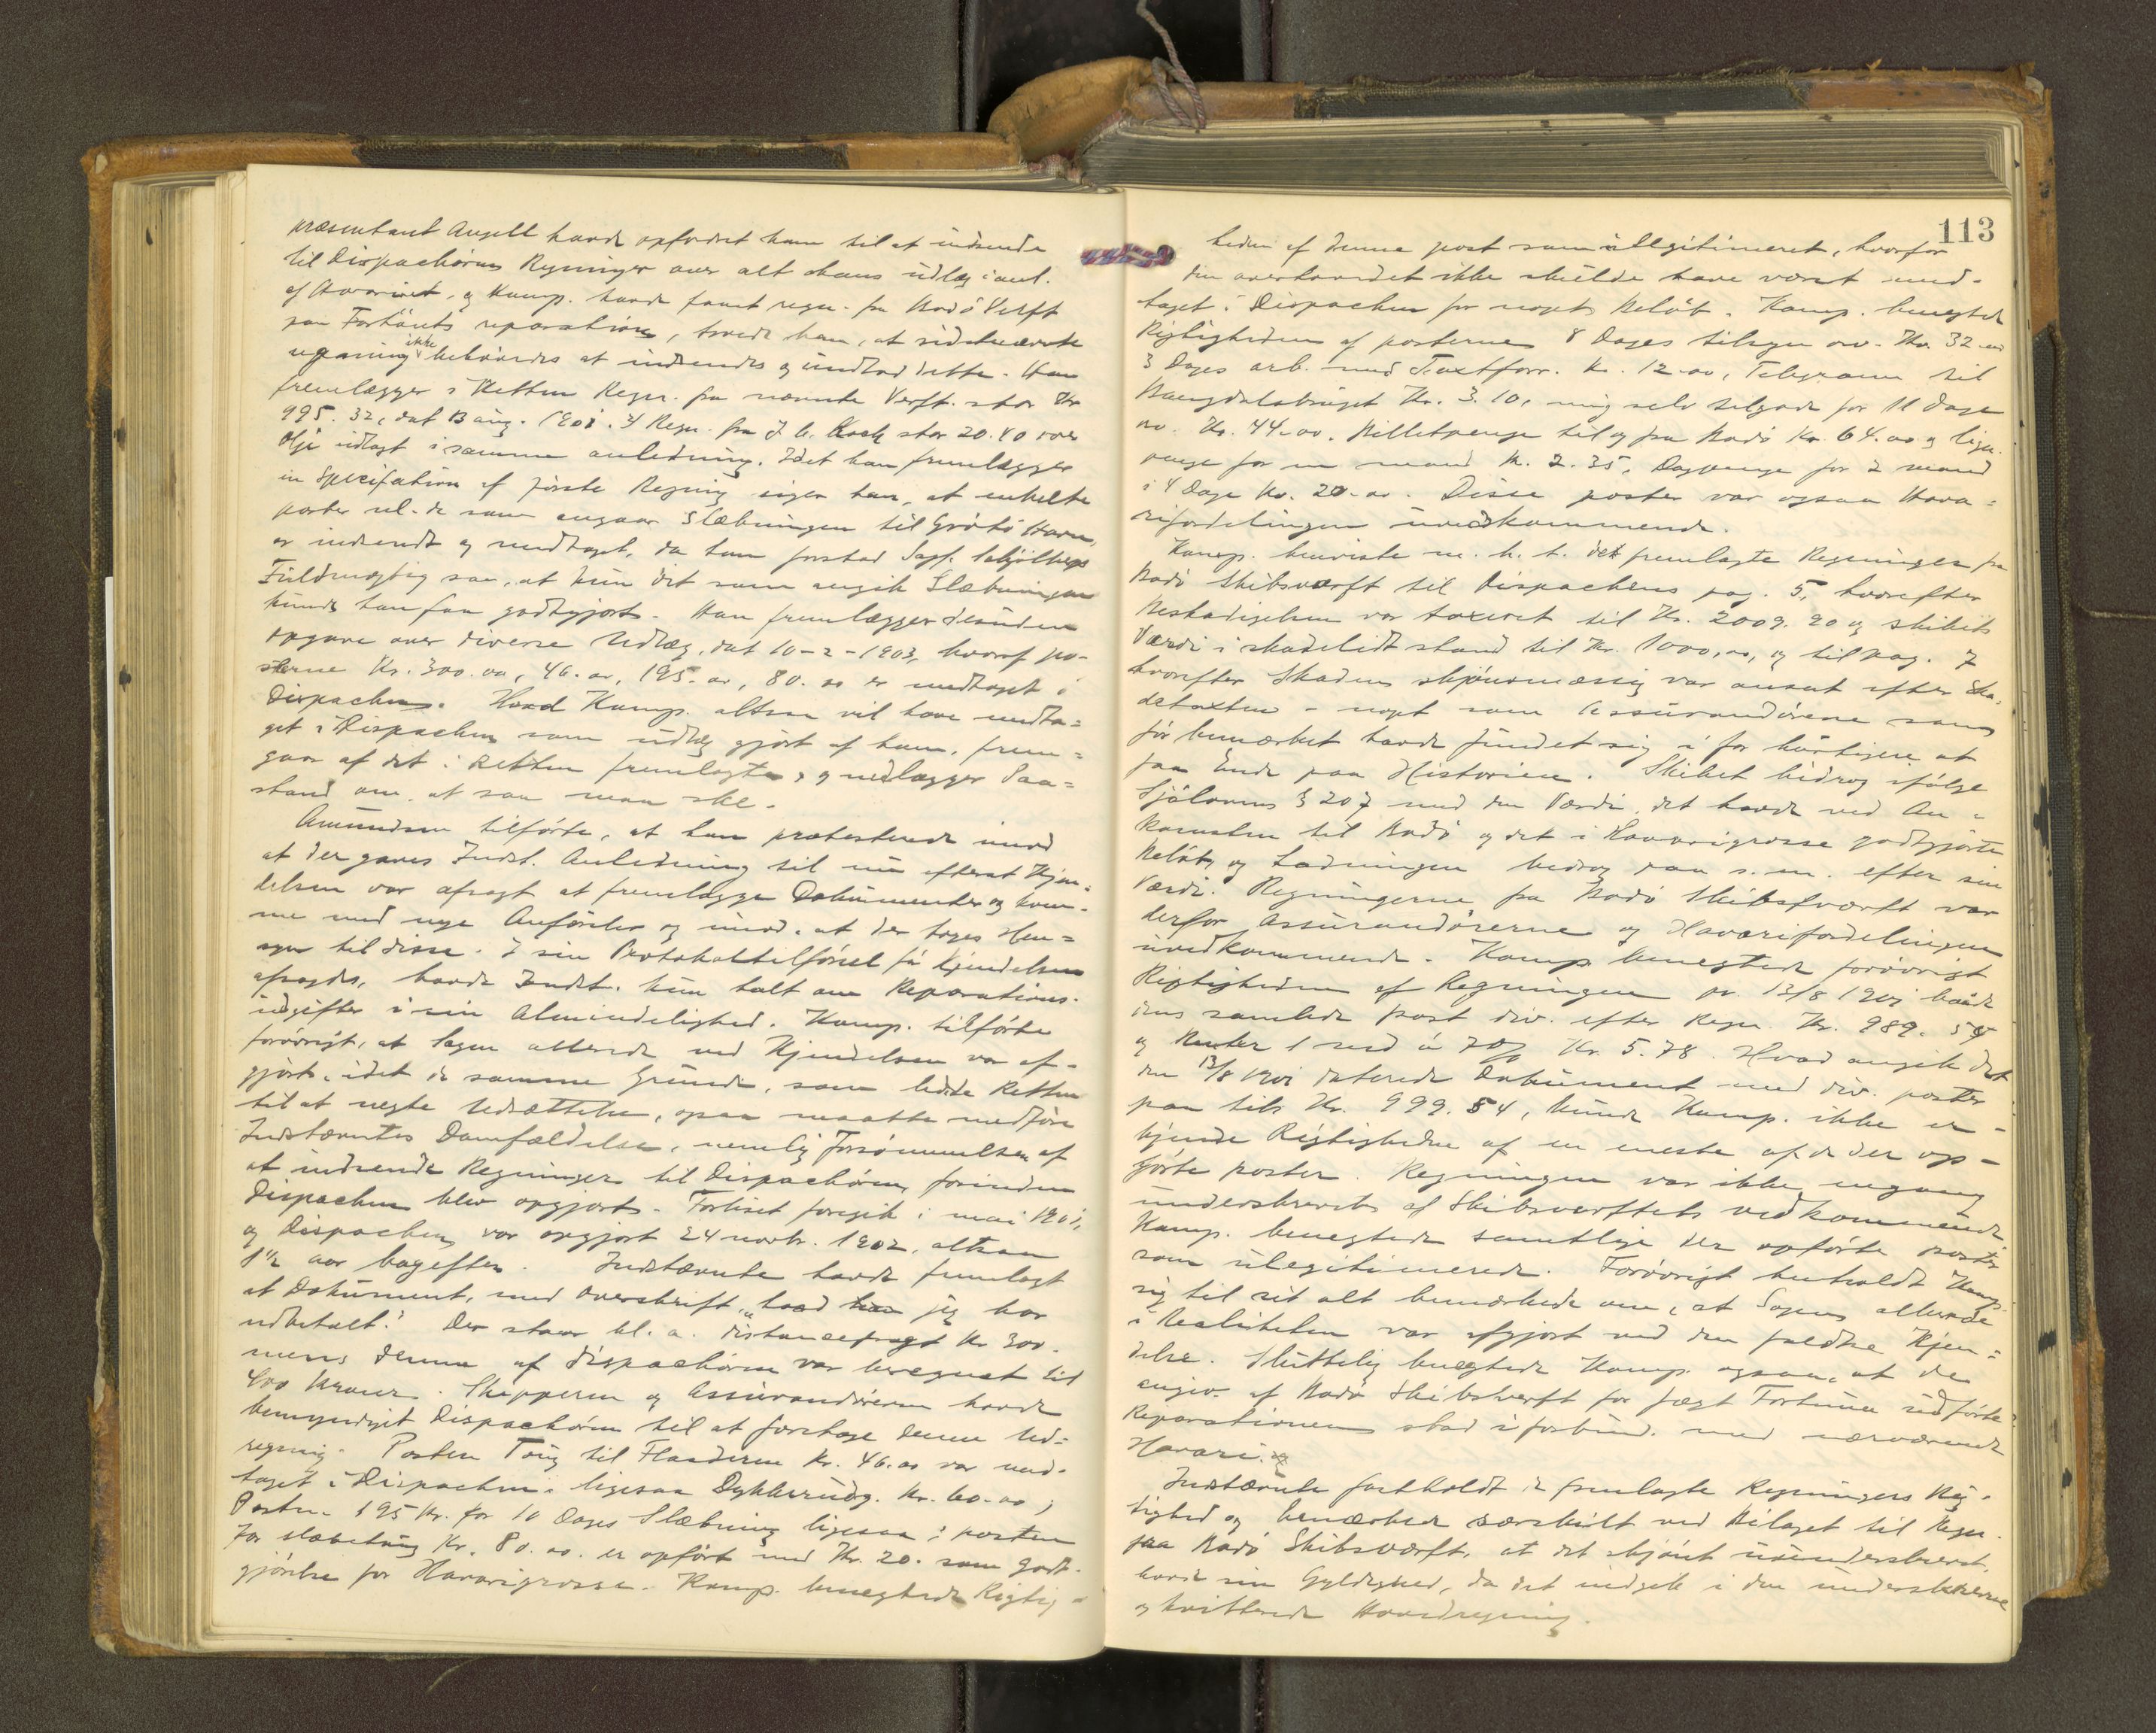 præsentant Angell havde opfordret ham til at indsende
til Dispachøren Regninger over alt hans udlæg i anl.
af Havariet, og Kamp. havde faaet regn. fra Bodö Verft
paa Fartöiets reparation, troede han, at sidstnævnte
regning ikke behövedes at indsendes og undlod dette. Han
fremlægger i Retten Regn. fra nævnte Verft stor Kr
995.32, dat 13 aug. 1901. Regn. fra J. C. Koch stor 20.40 over
Olje udlagt i samme anledning. Idet han fremlægger
en Specifation af förste Regning siger han, at enkelte
poster nl. de som angaar Slæbningen til Grötö Havn,
er indsendt og medtaget, da han forstod Sagf.
Fuldmægtig saa, at kun det som angik Slæbningen
kunde han faa godtgjort. Han fremlægger desuden
opgave over diverse Udlæg, dat 10-2-1903, hvoraf po-
sterne Kr. 300.00, 46.00, 195.00, 80.00 er medtaget i
Dispachen. Hvad Kamp. altsaa vil have medta=
get i Dispachen som udlæg gjort af ham, frem=
gaar af det i Retten fremlagte, og nedlægger Paa=
stand om, at saa maa ske.
Amundsen tilförte, at han protesterede imod
at der gaves Indst. Anledning til nu efterat Kjen=
delsen var afsagt at fremlægge Dokumenter og kom-
me med nye Anförsler og imod, at der toges Hen=
syn til disse. I sin Protokoltilförsel för Kjendelsen
afsagdes, havde Indst. kun talt om Reparations-
udgifter i sin Almindelighed. Kamp. tilförte
forövrigt, at Sagen allerede ved Kjendelsen var af-
gjort, idet de samme Grunde, som ledede Retten
til at negte Udsættelse, ogsaa maatte medföre
Indstævntes Domfældelse, nemlig Forsömmelsen af
at indsende Regninger til Dispachören, forinden
Dispachen blev opgjort. Forliset foregik i mai 1901,
og Dispachen var opgjort 24 novbr. 1902, altsaa
1½ aar bagefter. Indstævnte havde fremlagt
et Dokument, med Overskrift „hvad jeg har
udbetalt." Der staar bl. a. distancefragt Kr 300.
mens denne af dispachören var beregnet til
400 Kroner. Skipperen og Assurandörerne havde
bemyndiget Dispachören til at foretage denne Ud=
regning. Posten Toug til Flaaderne Kr. 46.00 var med-
taget i Dispachen, ligesaa Dykkerudg. Kr. 60.00;
Posten 195 Kr. for 10 Dages Slæbning ligesaa; posten
for slæbetoug Kr. 80.00. er opfört med Kr. 20. som godt-
gjörelse for Havarigrosse. Kamp. benegtede Rigtig-
113
heden af denne post som illegitimeret, hvorfor
den overhovedet ikke skulde have været med-
taget i Dispachen for noget Belöb. Kamp. benegted
Rigtigheden af posterne 8 Dages tilsyn o.v. Kr. 32 –
3 Dages arb. med Taxtforr. Kr. 12.00, Telegram til
Kr. 3.10, mig selv tilgode for 11 dage
Kr. 44.00. Billetpenge til og fra Bodö Kr. 64.00 og
penge for en mand Kr. 2.35, Dagpenge for 2 mand
i 4 Dage Kr. 20.00. Disse poster var ogsaa Hava=
rifordelingen uvedkommende.
Kamp. henviste m. h. t. det fremlagte Regninger fra
Bodö Skibsværft til Dispachens pag. 5, hvorefter
Beskadigelsen var taxeret til Kr. 2009.20 og skibets
Værdi i skadelidt stand til Kr. 1000,00, og til pag. 7
hvorefter Skaden skjönsmæssig var ansat efter Ska-
detaxten – noget som Assurandörene som
för bemærket havde fundet sig i for hurtigere at
faa Ende paa Historien. Skibet bidrog ifölge
Sjölovens § 207 med den Værdi, det havde ved An-
komsten til Bodö og det i Havarigrosse godtgjörte
Belöb, og Ladningen bidrog paa s. m. efter sin
Værdi. Regningerne fra Bodö Skibsværft var
derfor Assurandörerne og Havarifordelingen
uvedkommende. Kamp. benegtede forövrigt
Rigtigheden af Regningen pr. 13/8 1901 baade
dens samlede post div. efter Regn. Kr. 989.54
og Renter 1 md à 7% Kr. 5.78. Hvad angik det
den 13/8 1901 daterede Dokument med div. poster
paa tils Kr. 999.54, kunde Kamp. ikke er-
kjende Rigtigheden af en eneste af de der op-
förte poster. Regningen var ikke engang
underskrevet af Skibsverftets vedkommende
Kamp. benegtede samtlige der opförte poster
som ulegitimerede. Forövrigt henholdt Kamp.
sig til sit alt bemærkede om, at Sagen allerede
i Realiteten var afgjort ved den faldne Kjen=
delse. Sluttelig benegtede Kamp. ogsaa, at de
angiv. af Bodö Skibsverft for jægt Fortuna udförte
Reparationer stod i forbind. med nærværende
Havari.
Indstævnte fastholdt de fremlagte Regningers Rig-
tighed og bemærkede særskilt ved Bilaget til Regn.
fra Bodö Skibsværft, at det skjönt uunderskrevet,
havde sin Gyldighed, da det indgik i den underskrevne
og kvitterede Hovedregning.